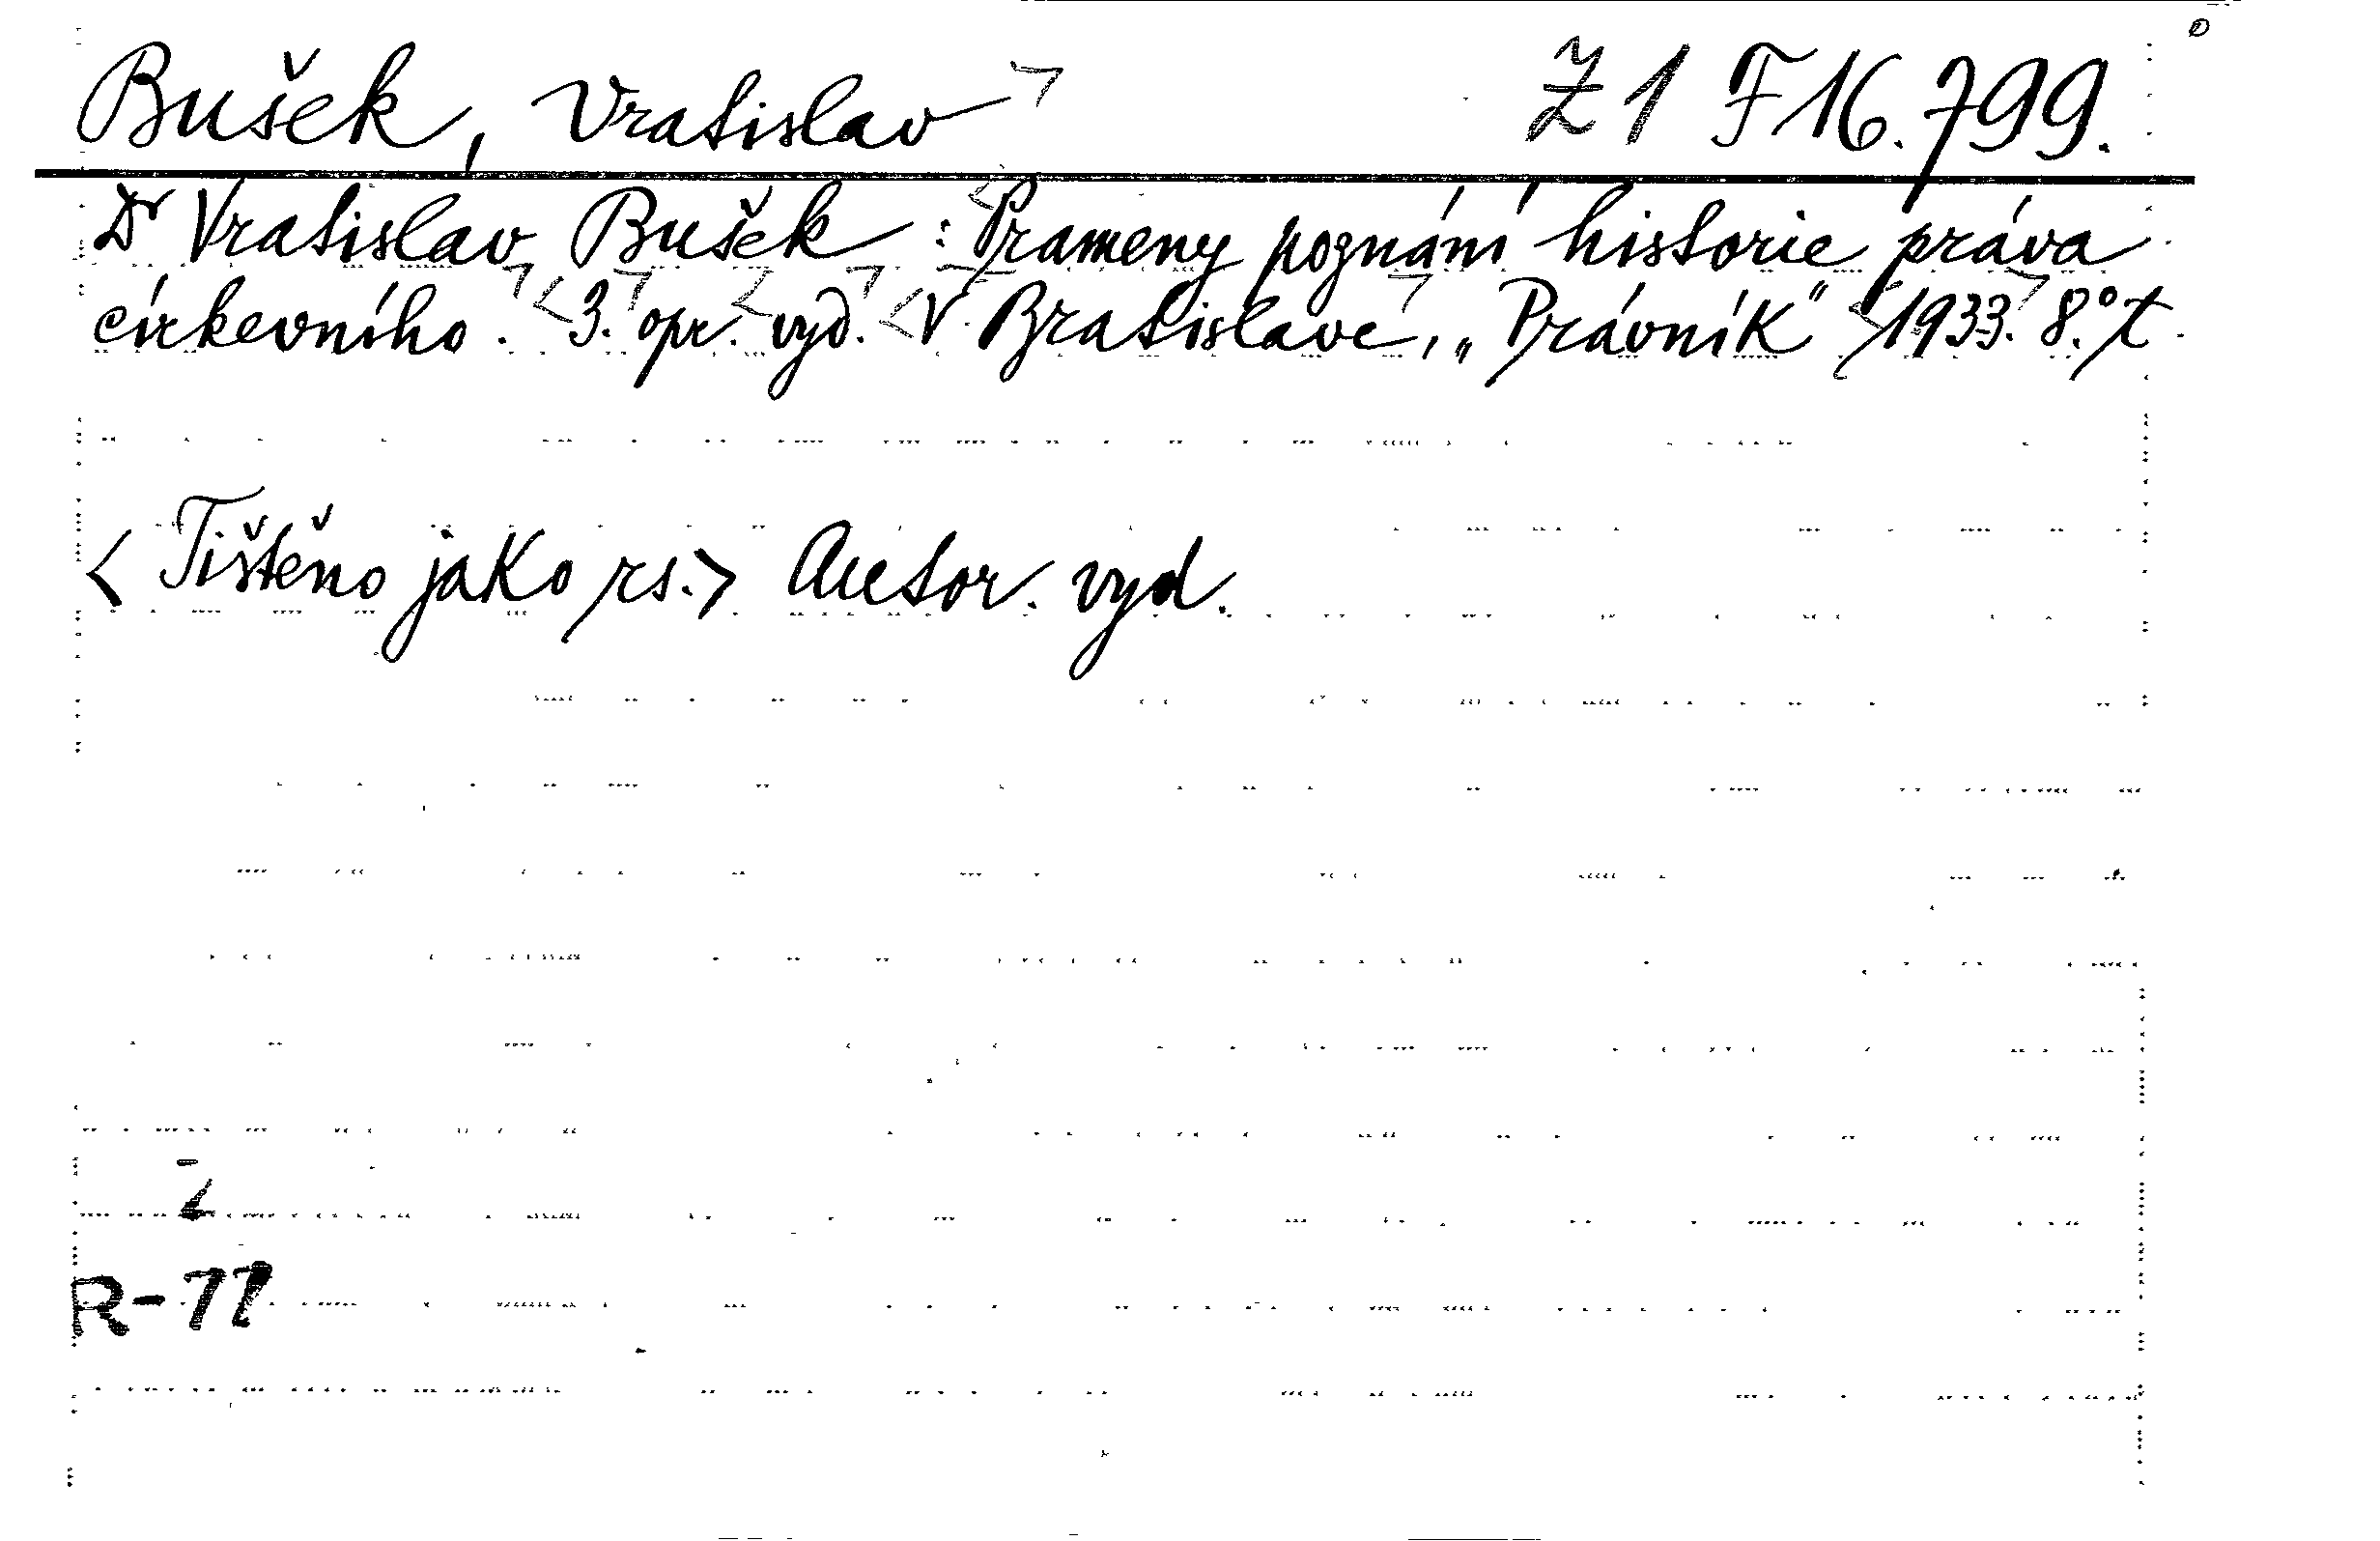 Bušek, Vratislav Z 1 F 16.799.
Dr Vratislav Bušek : Prameny poznání historie práva
církevního. 3. opr. vyd. V Bratislavě, „Právník" 1933. 8.° t
< Tištěno jako rs.> Autor. vyd.
R-77